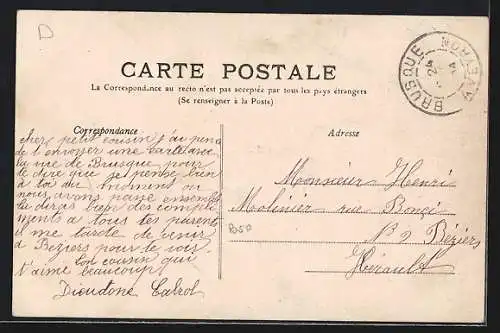 D
CARTE POSTALE
La Correspondance au recto n'est pas acceptée par tous les pays étrangers
(Se renseigner à la Poste)
BRUSQUE AVEYRON
24
14
Correspondance
Adresse
cher petit cousin j'ai pensé
de t'envoyer une carte avec
la vue de Brusque pour
te dire que je pense bien
à toi du moment ou
nous avons passé ensemble
tu diras bien des compli
ments a tous tes parents
il me tarde de venir
a Beziers pour te voir.
Ton cousin qui
t'aime beaucoup
Dieudoné Cabrol
Monsieur Henri
Molinier rue
Nº 2 Béziers
Hérault
B50